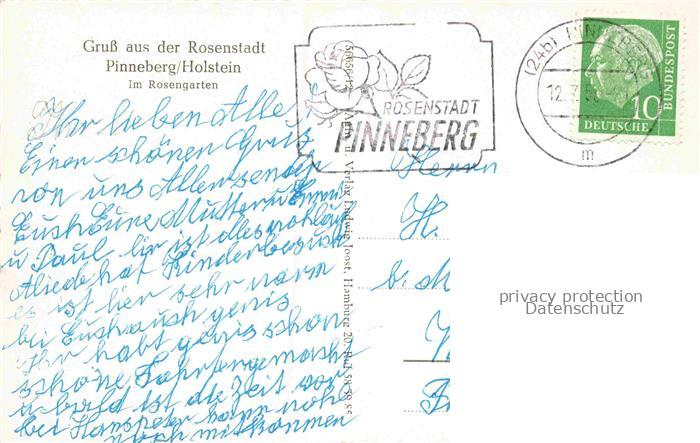 Gruß aus der Rosenstadt
Pinneberg/Holstein
Im Rosengarten
Ihr lieben Alle!
Einen schönen Gruß
von uns Allen senden
Euch Eure Mutter u.
u Paul. hir ist alles wohlauf
hat Kinderbesuch
es ist hier sehr warm
bei Euch auch gewis
Ihr habt gewis schon
schöne Fahrten gemacht
u bald ist die Zeit vor
bei Hanspeter kann wohl
noch mitkommen
Verlag Ludwig Joost, Hamburg 20
ROSENSTADT
PINNEBERG
(24b) PINNEBERG
12.
m
10
DEUTSCHE
BUNDESPOST
Herrn
H.
b.
privacy protection
Datenschutz